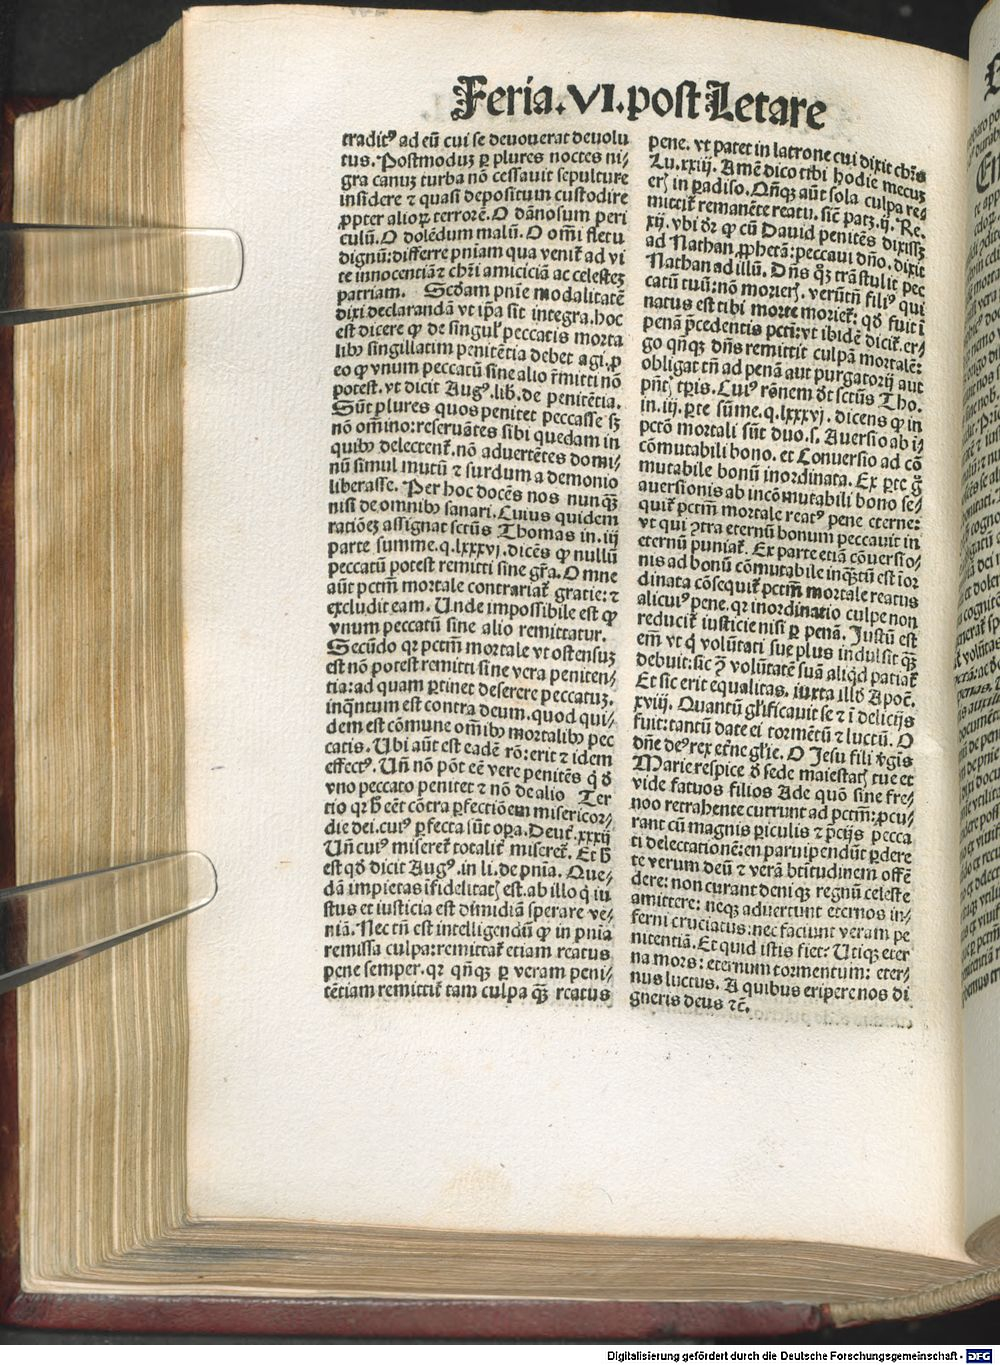 Feria.VI.post Letare
traditꝰ ad eū cui se deuouerat deuolu
tus. Postmoduꝫ ꝑ plures noctes ni⸗
gra canuꝫ turba nō cessauit sepulture
insidere ⁊ quasi depositum custodire
ꝓpter alioꝝ terrorē. O dānosum peri
culū. O dolēdum malū. O om̄i fletu
dignū: differre pn̄iam qua venit̄ ad vi
te innocentiā ⁊ chr̄i amiciciā ac celesteꝫ
patriam. Scd̄am pn̄ie modalitatē
dixi declarandā vt ip̄a sit integra. hoc
est dicere ꝙ de singul̄ peccatis morta
libꝰ singillatim penitētia debet agi. ꝓ
eo ꝙ vnum peccatū sine alio r̄mitti nō
potest. vt dicit Augꝰ. lib. de penitētia.
Sūt plures quos penitet peccasse sꝫ
nō om̄ino: reseruātes sibi quedam in
quibꝰ delectent̄. nō aduertētes domi⸗
nū simul mutū ⁊ surdum a demonio
liberasse. Per hoc docēs nos nunqꝫ̄
nisi de omnibꝰ sanari. Cuius quidem
ratiōeꝫ assignat sctūs Thomas in. iij
parte summe. q. lxxxvj. dicēs ꝙ nullū
peccatū potest remitti sine gr̄a. Omne
aūt pctm̄ mortale contrariat̄ gratie: ⁊
excludit eam. Unde impossibile est ꝙ
vnum peccatū sine alio remittatur.
Secūdo qꝛ pctm̄ mortale vt ostensuꝫ
est nō potest remitti sine vera peniten⸗
tia: ad quam ꝑtinet deserere peccatuꝫ.
inqn̄tum est contra deum. quod qui⸗
dem est cōmune om̄ibꝰ mortalibꝰ pec
catis. Ubi aūt est eadē rō: erit ⁊ idem
effectꝰ. Un̄ nō pōt eē vere penitēs q̇ ď
vno peccato penitet ⁊ nō de alio Ter
tio qꝛ h̄ eēt cōtra ꝑfectiōem misericor⸗
die dei. cuiꝰ ꝑfecta sūt oꝑa. Deut̄. xxxij
Un̄ cuiꝰ miseret̄ totalit̄ miseret̄. Et h̄
est qď dicit Augꝰ. in li. de pn̄ia. Que⸗
dā impietas īfidelitatꝭ est. ab illo q̇ iu
stus et iusticia est dimidiā sperare ve⸗
niā. Nec tn̄ est intelligendū ꝙ in pn̄ia
remissa culpa: remittat̄ etiam reatus
pene semper. qꝛ qn̄qꝫ ꝑ veram peni⸗
tētiam remittit̄ tam culpa qꝫ̄ reatus
pene. vt patet in latrone cui dixit chr̄s
Lu. xxiij. Amē dico tibi hodie mecuꝫ
erꝭ in ꝑadiso. Qn̄qꝫ aūt sola culpa re⸗
mittit̄ remanēte reatu. sic̄ patꝫ. ij. Re.
xij. vbi dr̄ ꝙ cū Dauid penitēs dixissꝫ
ad Nathan ꝓphetā: peccaui dn̄o. dixit
Nathan ad illū. Dn̄s qꝫ trāstulit pec
catū tuū: nō morierꝭ. verūtn̄ filiꝰ qui
natus est tibi morte moriet̄: qď fuit ī
penā p̄cedentis pcti: vt ibidē dicit̄. er⸗
go qn̄qꝫ dn̄s remittit culpā mortalē:
obligat tn̄ ad penā aut purgatorij aut
pn̄tꝭ tp̄is. Cuiꝰ rōnem dt̄ sctūs Tho.
in. iij. ꝑte sūme. q. lxxxvj. dicens ꝙ in
pctō mortali sūt duo. s. Auersio ab i⸗
cōmutabili bono. et Conuersio ad cō
mutabile bonū inordinata. Ex ꝑte g̊
auersionis ab incōmutabili bono se⸗
quit̄ pctm̄ mortale reatꝰ pene eterne:
vt qui ↄtra eternū bonum peccauit in
eternū puniat̄. Ex parte etiā cōuersio⸗
nis ad bonū cōmutabile inqꝫ̄tū est īor
dinata cōsequit̄ pctm̄ mortale reatus
alicuiꝰ pene. qꝛ inordinatio culpe non
reducit̄ iusticie nisi ꝑ penā. Justū est
em̄ vt q̇ volūtati sue plus indulsit qꝫ̄
debuit: sic ↄ̄ volūtatē suā aliqd patiat̄
Et sic erit equalitas. iuxta illď Apoc̄.
xviij. Quantū glr̄ificauit se ⁊ ī delicijs
fuit: tantū date ei tormētū ⁊ luctū. O
dn̄e deꝰ rex et̄ne gl̄ie. O Jesu fili v̄gīs
Marie respice ď sede maiestatꝭ tue et
vide fatuos filios Ade quō sine fre⸗
noo retrahente currunt ad pctm̄: ꝓcu⸗
rant cū magnis ꝑiculis ⁊ p̄cijs pecca
ti delectationē: en paruipendūt ꝑdere
te verum deū ⁊ verā btītudinem offē
dere: non curant deniqꝫ regnū celeste
amittere: neqꝫ aduertunt eternos in⸗
ferni cruciatus: nec faciunt veram pe
nitentiā. Et quid istis fiet: Utiqꝫ eter
na mors: eternum tormentum: eter⸗
nus luctus. A quibus eripere nos di
gneris deus ⁊c̄.
Digitalisierung gefördert durch die Deutsche Forschungsgemeinschaft - DFG